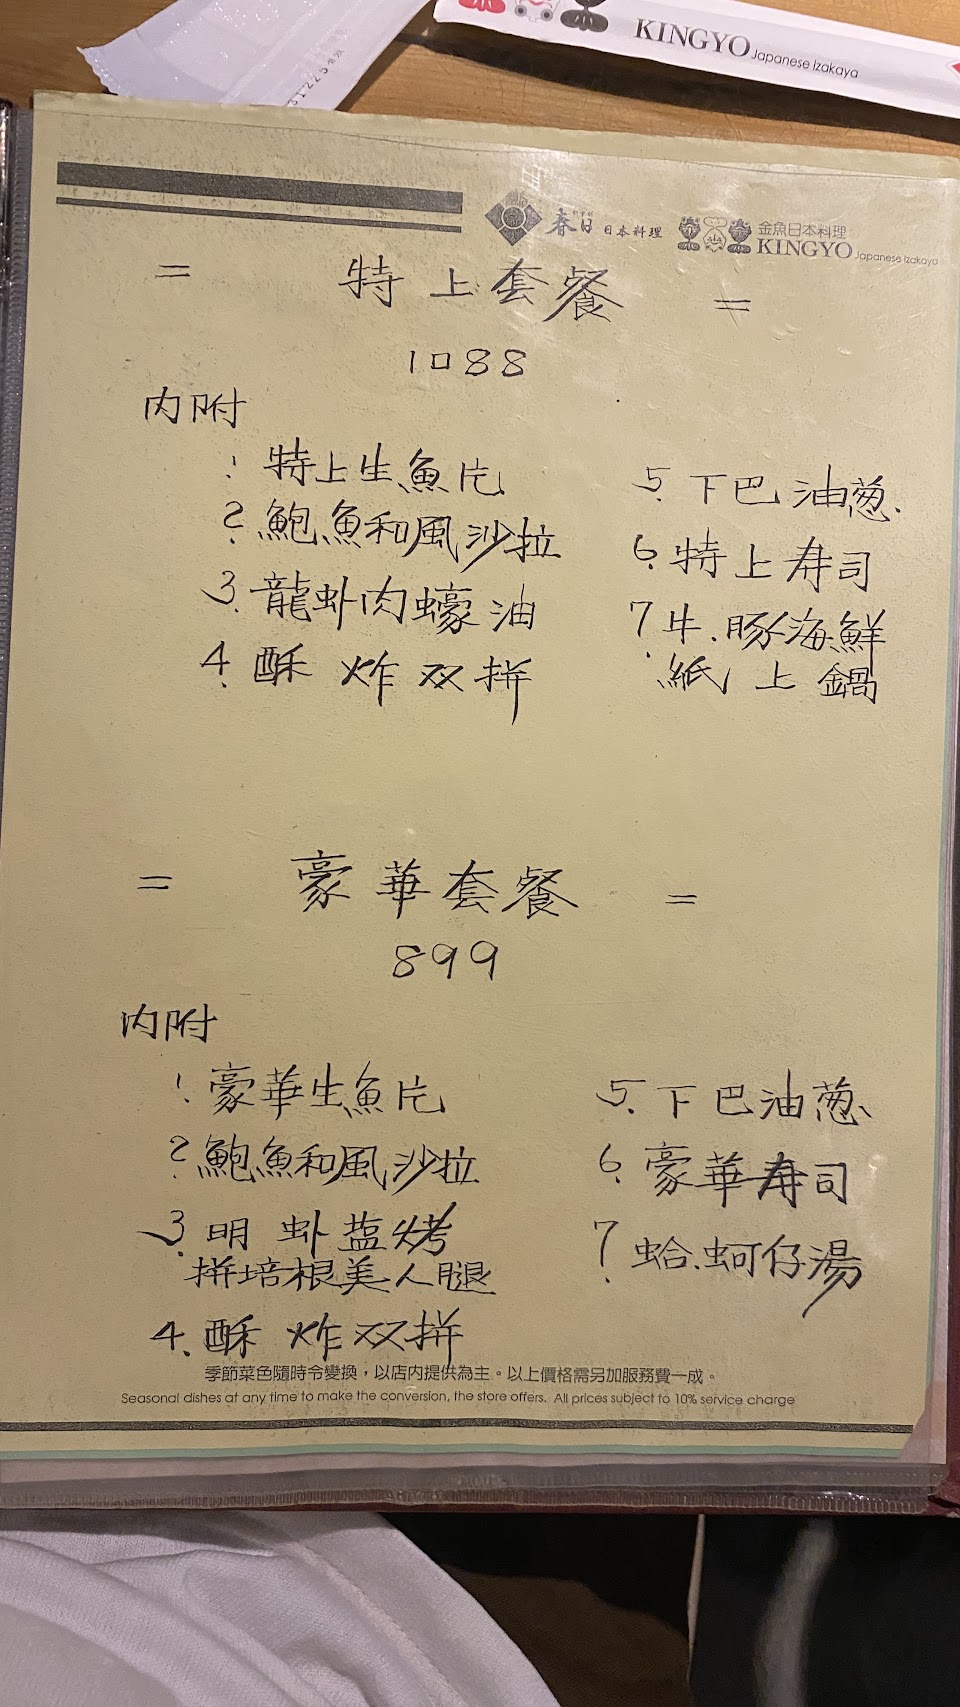 31.2.25有效
KINGYO Japanese Izakaya
春日 日本料理
金魚日本料理
KINGYO Japanese Izakaya
= 特上套餐 =
1088
内附
1. 特上生魚片
2. 鮑魚和風沙拉
3. 龍虾肉蠔油
4. 酥炸双拼
5. 下巴油葱
6. 特上寿司
7. 牛.豚海鮮
紙上鍋
= 豪華套餐 =
899
内附
1. 豪華生魚片
2. 鮑魚和風沙拉
3. 明虾塩烤
拼培根美人腿
4. 酥炸双拼
5. 下巴油葱
6. 豪華寿司
7. 蛤.蚵仔湯
季節菜色隨時令變換，以店内提供為主。以上價格需另加服務費一成。
Seasonal dishes at any time to make the conversion, the store offers. All prices subject to 10% service charge